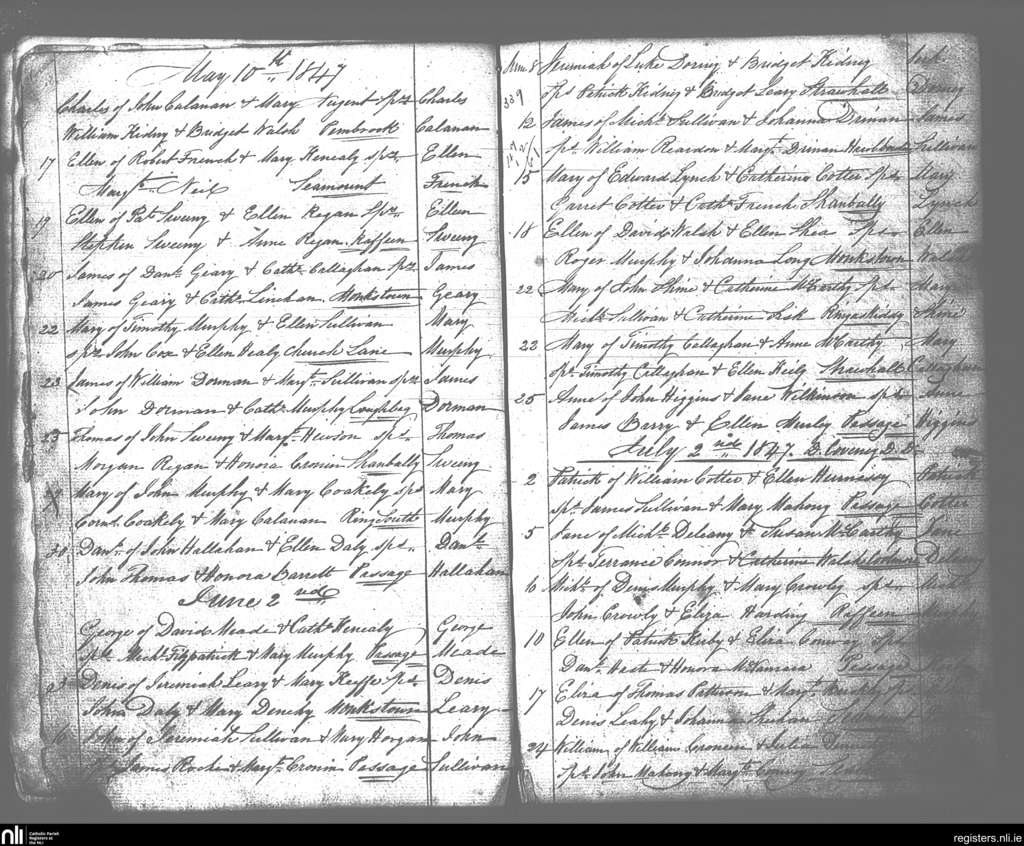 May 10th 1847
Charles of John Calanan & Mary Nugent Sprs Charles
William Kidny & Bridget Walsh Pembrook Calanan
17 Ellen of Robert French & Mary Kenealy sprs Ellen
Margt Neil Seamount French
19 Ellen of Patk Sweeny & Ellen Regan Sprs Ellen
Stephen Sweeny & Anne Regan Raffeen Sweeny
20 James of Danl Geary & Cathe Callaghan Sprs James
James Geary & Cathe Linehan Monkstown Geary
22 Mary of Timothy Murphy & Ellen Sullivan Mary
sprs John Cox & Ellen Healy Church Lane Murphy
23 James of William Dorman & Margt Sullivan sprs James
John Dorman & Cathe Murphy Dorman
23 Thomas of John Sweeny & Margt Hewson sprs Thomas
Morgan Regan & Honora Cronin Shanbally Sweeny
Mary of John Murphy & Mary Coakely sprs Mary
Corns Coakely & Mary Calanan Ring South Murphy
30 Danl of John Hallahan & Ellen Daly sprs Danl
John Thomas & Honora Barrett Passage Hallahan
June 2nd
George of David Meade & Cathe Kenealy George
Sprs Michl Fitzpatrick & Mary Murphy Passage Meade
Denis of Jeremiah Leary & Mary Keeffe sprs Denis
John Daly & Mary Denehy Monkstown Leary
6 John of Jeremiah Sullivan & Mary Horgan John
Sprs James Roche & Margt Cronin Passage Sullivan
June 8 Jeremiah of Luke Doring & Bridget Kidny
sprs Patrick Kidny & Bridget Leary Strawhall Doring
339
12 James of Michl Sullivan & Johanna Drinan James
sprs William Reardon & Margt Drinan Sullivan
15 Mary of Edward Lynch & Catherine Cotter Sprs Mary
Garret Cotter & Cathe French Shanbally Lynch
18 Ellen of David Walsh & Ellen Shea Sprs Ellen
Roger Murphy & Johanna Long Monkstown Walsh
22 Mary of John Shine & Catherine McCarthy Sprs Mary
Michl Sullivan & Catherine Sisk Ringaskiddy Shine
22 Mary of Timothy Callaghan & Anne McCarthy Mary
Sprs Timothy Callaghan & Ellen Keily Strawhall Callaghan
25 Anne of John Higgins & Jane Wilkinson sprs Anne
James Barry & Ellen Hurley Passage Higgins
July 2nd 1847. D. Coveney D.D.
2 Patrick of William Cotter & Ellen Hennessy Patrick
Sprs James Sullivan & Mary Mahony Passage Cotter
5 Jane of Michl Delany & Susan McCarthy Jane
Sprs Terrance Connor & Catherine Walsh Delany
6 Michl of Denis Murphy & Mary Crowly sprs
John Crowly & Eliza Harding Raffeen
10 Ellen of Patrick Kirby & Eliza Conway sprs
Danl Hart & Honora McNamara Passage
17 Eliza of Thomas Patterson & Margt Buckley sprs
Denis Leahy & Johanna Sheehan
24 William of William Cronin & Julia
Sprs John Mahony & Margt Conway
nli
Catholic Parish
Registers at
the NLI
registers.nli.ie